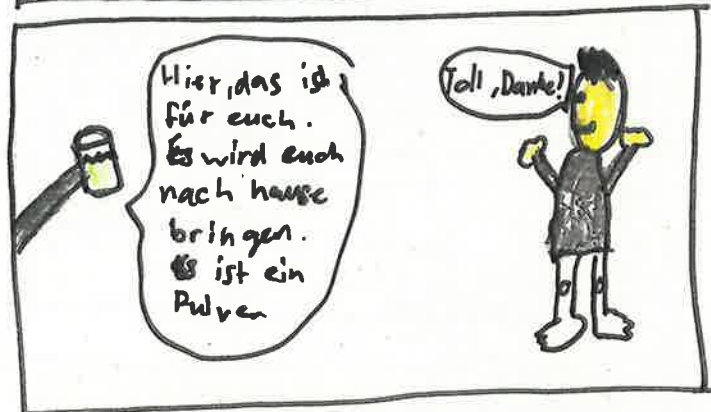 Hier, das ist
für euch.
Es wird euch
nach hause
bringen.
Es ist ein
Pulver
Toll, Danke!